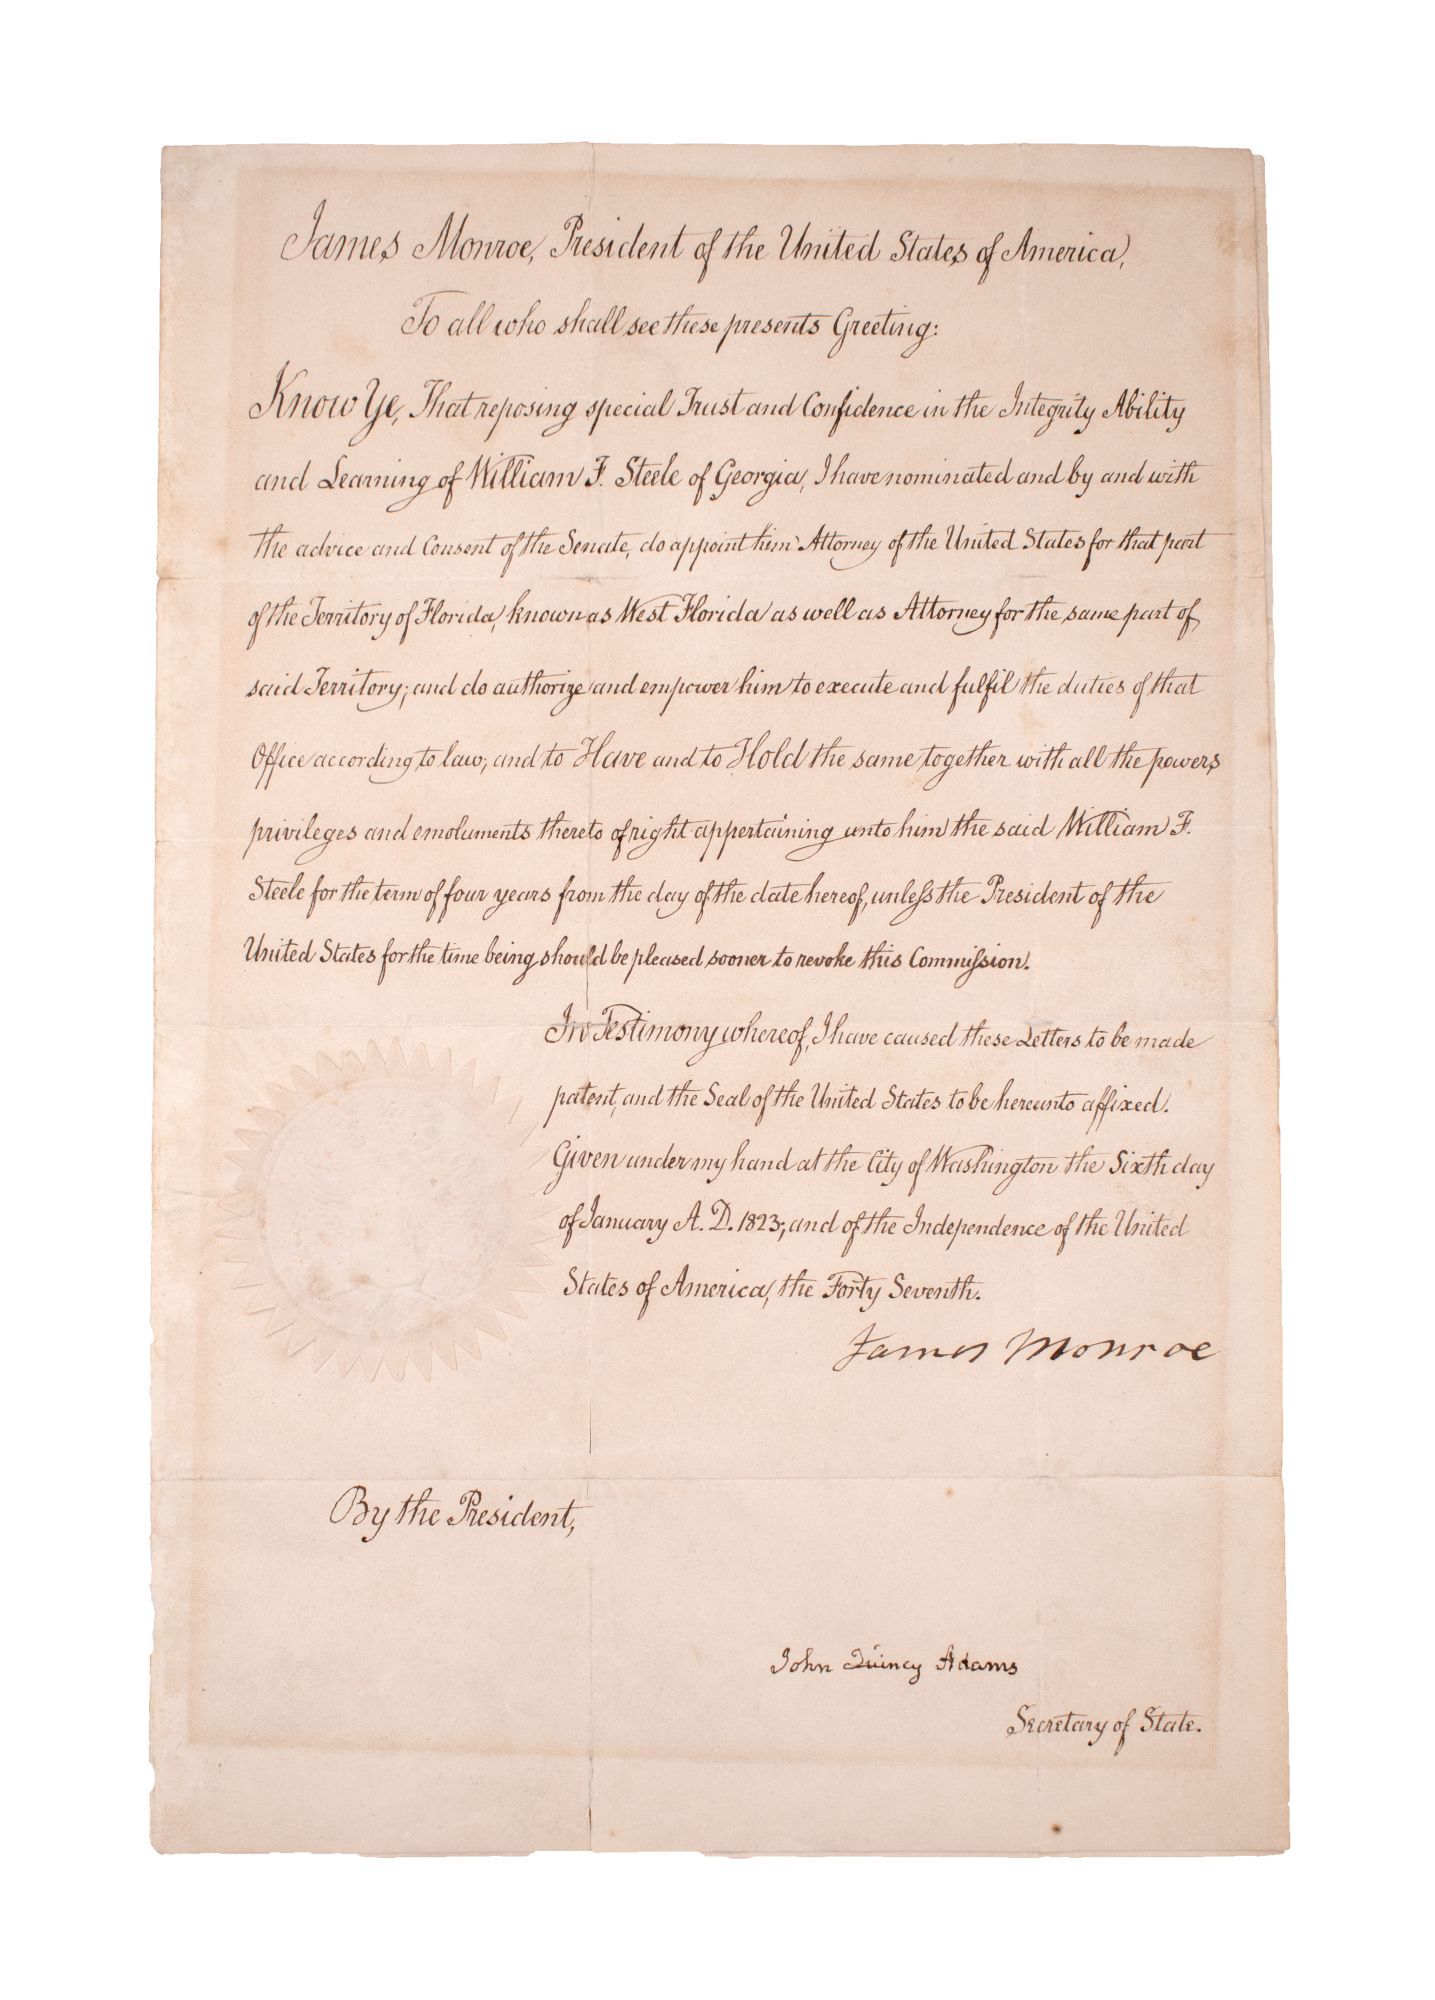 James Monroe, President of the United States of America,
To all who shall see these presents Greeting:
Know Ye, That reposing special Trust and Confidence in the Integrity Ability
and Learning of William F. Steele of Georgia, I have nominated and by and with
the advice and Consent of the Senate, do appoint him Attorney of the United States for that part
of the Territory of Florida, known as West Florida as well as Attorney for the same part of
said Territory; and do authorize and empower him to execute and fulfil the duties of that
Office according to law; and to Have and to Hold the same together with all the powers,
privileges and emoluments thereto of right appertaining unto him the said William F.
Steele for the term of four years from the day of the date hereof, unleſs the President of the
United States for the time being should be pleased sooner to revoke this Commiſsion.
In Testimony whereof, I have caused these Letters to be made
patent, and the Seal of the United States to be hereunto affixed.
Given under my hand at the City of Washington the Sixth day
of January A. D. 1823; and of the Independence of the United
States of America, the Forty Seventh.
James Monroe
By the President,
John Quincy Adams
Secretary of State.